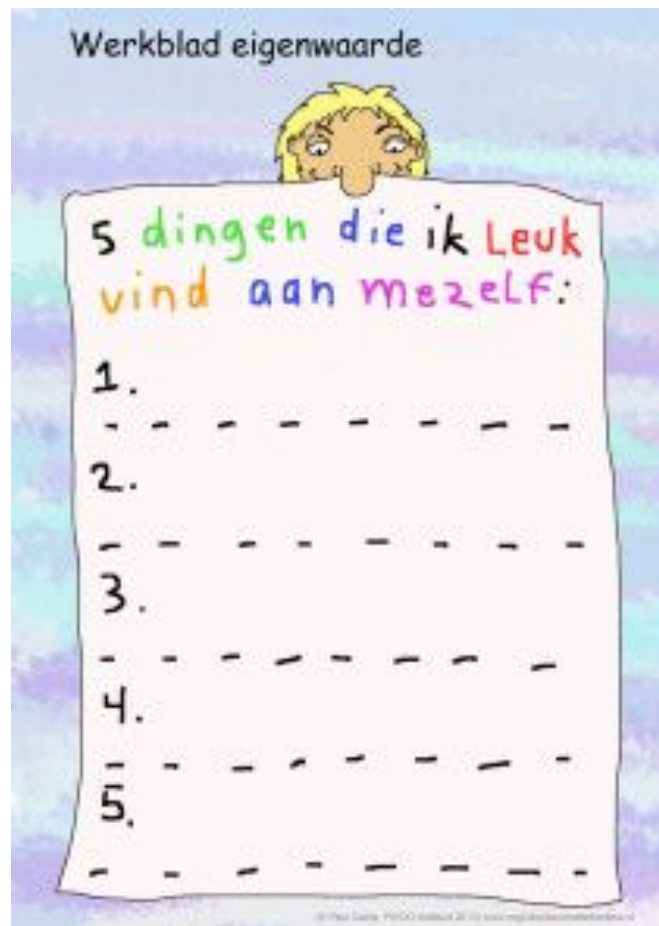 Werkblad eigenwaarde
5 dingen die ik Leuk
vind aan mezelf:
1.
2.
3.
4.
5.